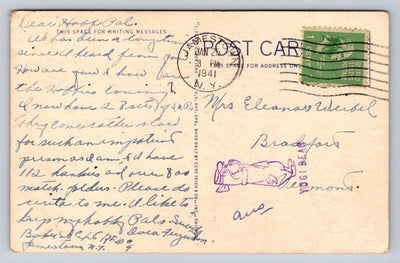 Dear Hobby Pal.
THIS SPACE FOR WRITING MESSAGES
It has been a long time
since I heard from you
How are you & how
the Hobbie coming?
I now have
They come rather slow
for such an impatient
person as I am. I'd have
112 hankies and over 800
match folders. Please do
write to me. I'd like to
keep my hobby Pals.
Dora Ferguson
Jamestown N.Y.
JAMESTOWN
JAN 2
3 PM
1941
N.Y.
POST CARD
THIS SPACE FOR ADDRESS ONLY
Mrs Eleanor Weibel
Bradford
Vermont.
YOGI BEAR